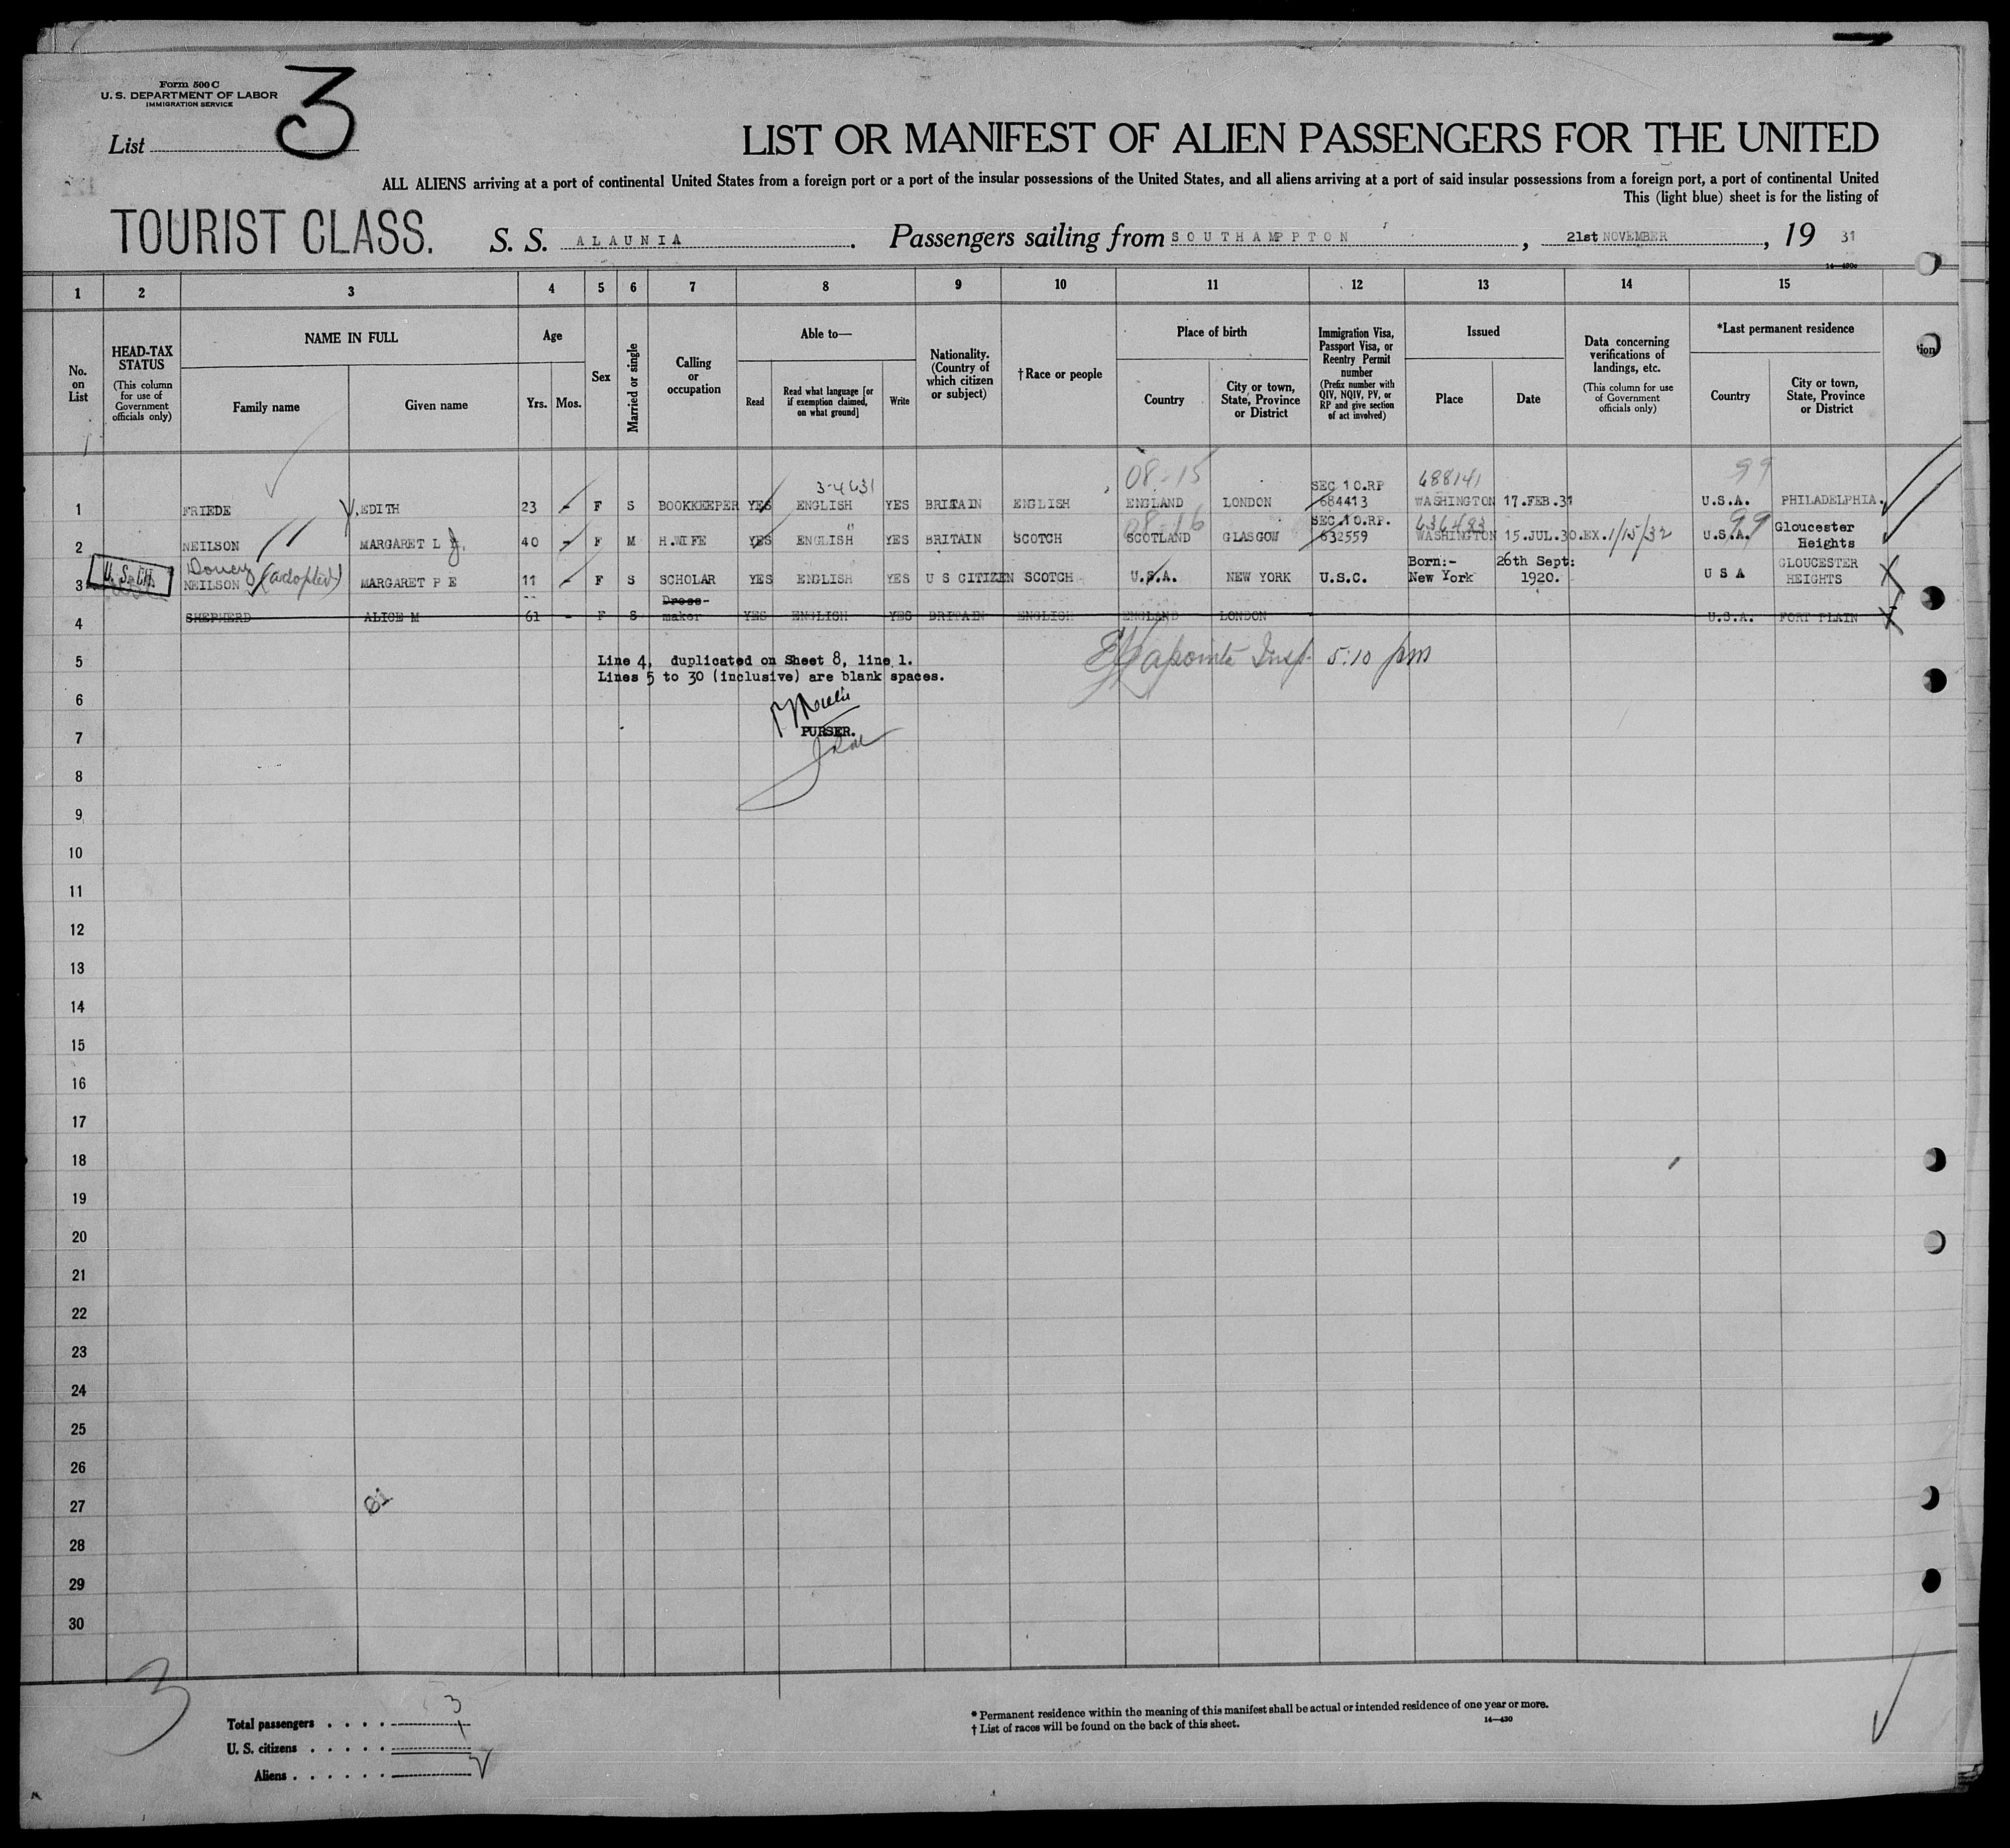 Form 500 C
U. S. DEPARTMENT OF LABOR
IMMIGRATION SERVICE
List 3
LIST OR MANIFEST OF ALIEN PASSENGERS FOR THE UNITED
ALL ALIENS arriving at a port of continental United States from a foreign port or a port of the insular possessions of the United States, and all aliens arriving at a port of said insular possessions from a foreign port, a port of continental United
This (light blue) sheet is for the listing of
TOURIST CLASS. S. S. ALAUNIA. Passengers sailing from SOUTHAMPPTON, 21st NOVEMBER, 19 31
14—430c
1 2 3 4 5 6 7 8 9 10 11 12 13 14 15
No. on List
HEAD-TAX STATUS
(This column for use of Government officials only)
NAME IN FULL
Family name
Given name
Age
Yrs. Mos.
Sex
Married or single
Calling or occupation
Able to—
Read
Read what language [or if exemption claimed, on what ground]
Write
Nationality. (Country of which citizen or subject)
†Race or people
Place of birth
Country
City or town, State, Province or District
Immigration Visa, Passport Visa, or Reentry Permit number
(Prefix number with QIV, NQIV, PV, or RP and give section of act involved)
Issued
Place
Date
Data concerning verifications of landings, etc.
(This column for use of Government officials only)
*Last permanent residence
Country
City or town, State, Province or District
tion
3-4631 08-15 SEC 10.RP 688141 99
1 FRIEDE EDITH 23 - F S BOOKKEEPER YES ENGLISH YES BRITAIN ENGLISH ENGLAND LONDON 684413 WASHINGTON 17.FEB.31 U.S.A. PHILADELPHIA.
" 08-16 SEC.10.RP. 636483 99
2 NEILSON MARGARET L J. 40 - F M H.WIFE YES ENGLISH YES BRITAIN SCOTCH SCOTLAND GLASGOW 632559 WASHINGTON 15.JUL.30.EX.1/15/32 U.S.A. Gloucester Heights
U. S. CIT. (adopted)
3 NEILSON MARGARET P E 11 - F S SCHOLAR YES ENGLISH YES U S CITIZEN SCOTCH U.S.A. NEW YORK U.S.C. Born:- New York 26th Sept: 1920. U S A GLOUCESTER HEIGHTS
4 SHEPHERD ALICE M 61 - F S Dress-maker YES ENGLISH YES BRITAIN ENGLISH ENGLAND LONDON U.S.A. FORT PLAIN
5 Line 4, duplicated on Sheet 8, line 1.
Lines 5 to 30 (inclusive) are blank spaces.
Lapointe Insp. 5:10 pm
6
PURSER.
7
8
9
10
11
12
13
14
15
16
17
18
19
20
21
22
23
24
25
26
27
28
29
30
3
Total passengers . . . . 3
U. S. citizens . . . . . 1
Aliens . . . . . . 2
* Permanent residence within the meaning of this manifest shall be actual or intended residence of one year or more.
† List of races will be found on the back of this sheet.
14—430